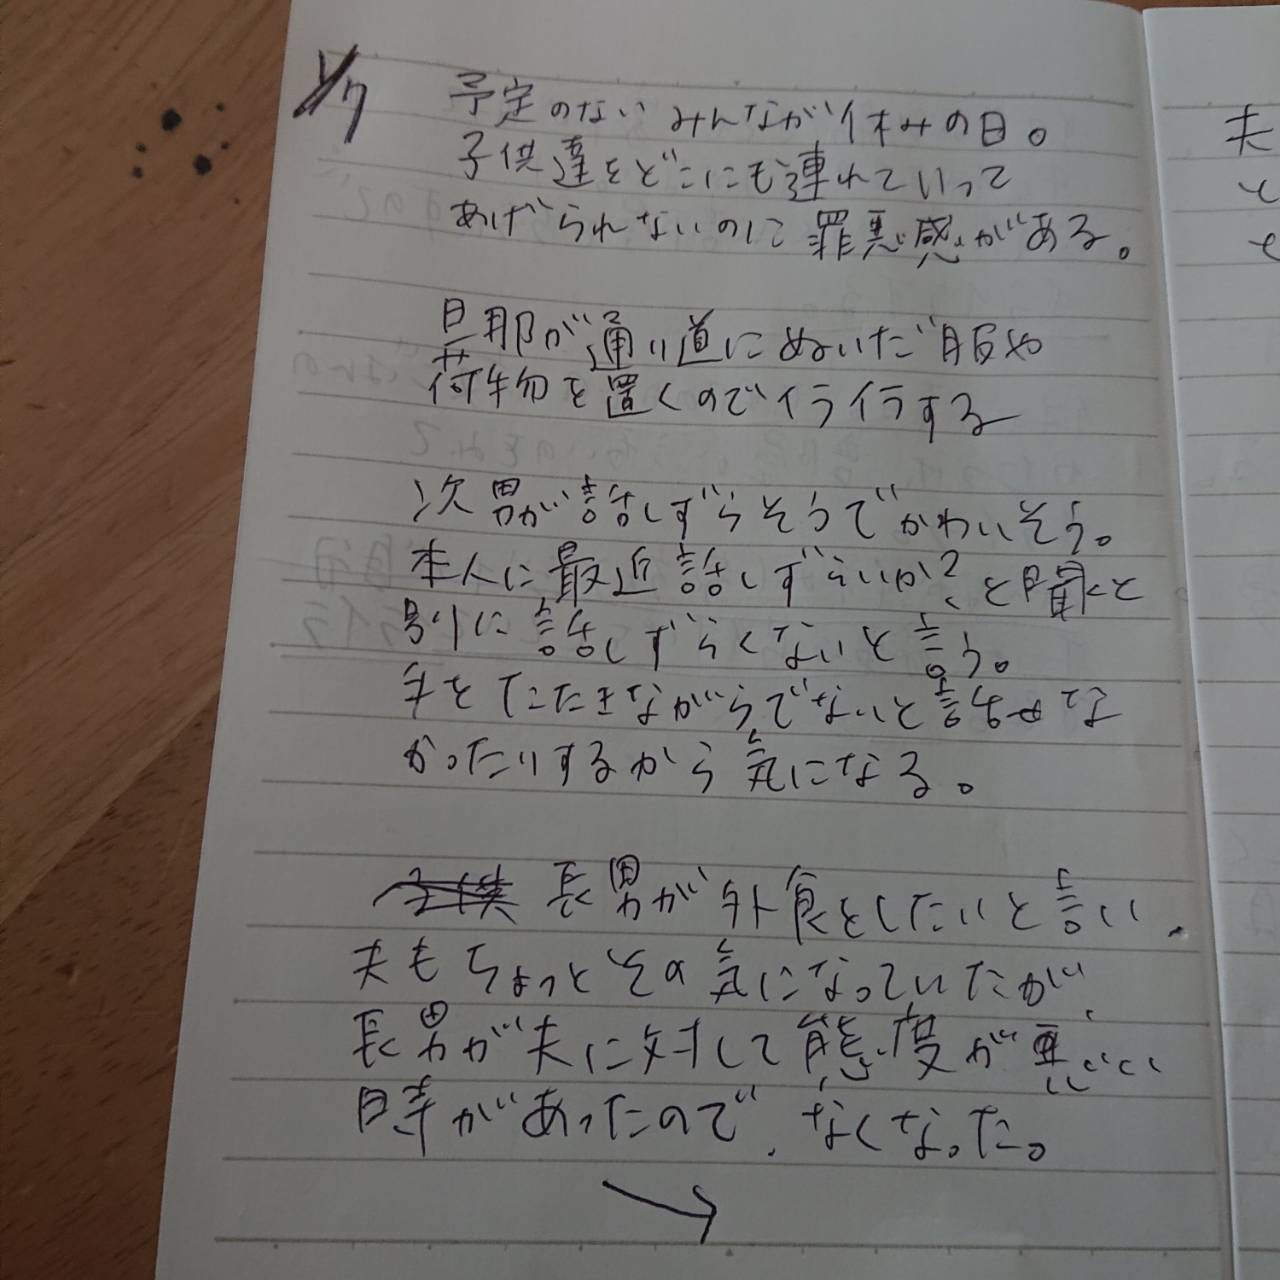 1/7
予定のないみんなが休みの日。
子供達をどこにも連れていって
あげられないのに罪悪感がある。
旦那が通り道にぬいだ服や
荷物を置くのでイライラする
次男が話しずらそうでかわいそう。
本人に最近話しずらいか?と聞くと
別に話しずらくないと言う。
手をたたきながらでないと話せな
かったりするから気になる。
長男が外食をしたいと言い、
夫もちょっとその気になっていたが、
長男が夫に対して態度が悪い
時があったので、なくなった。
→
夫
と
と